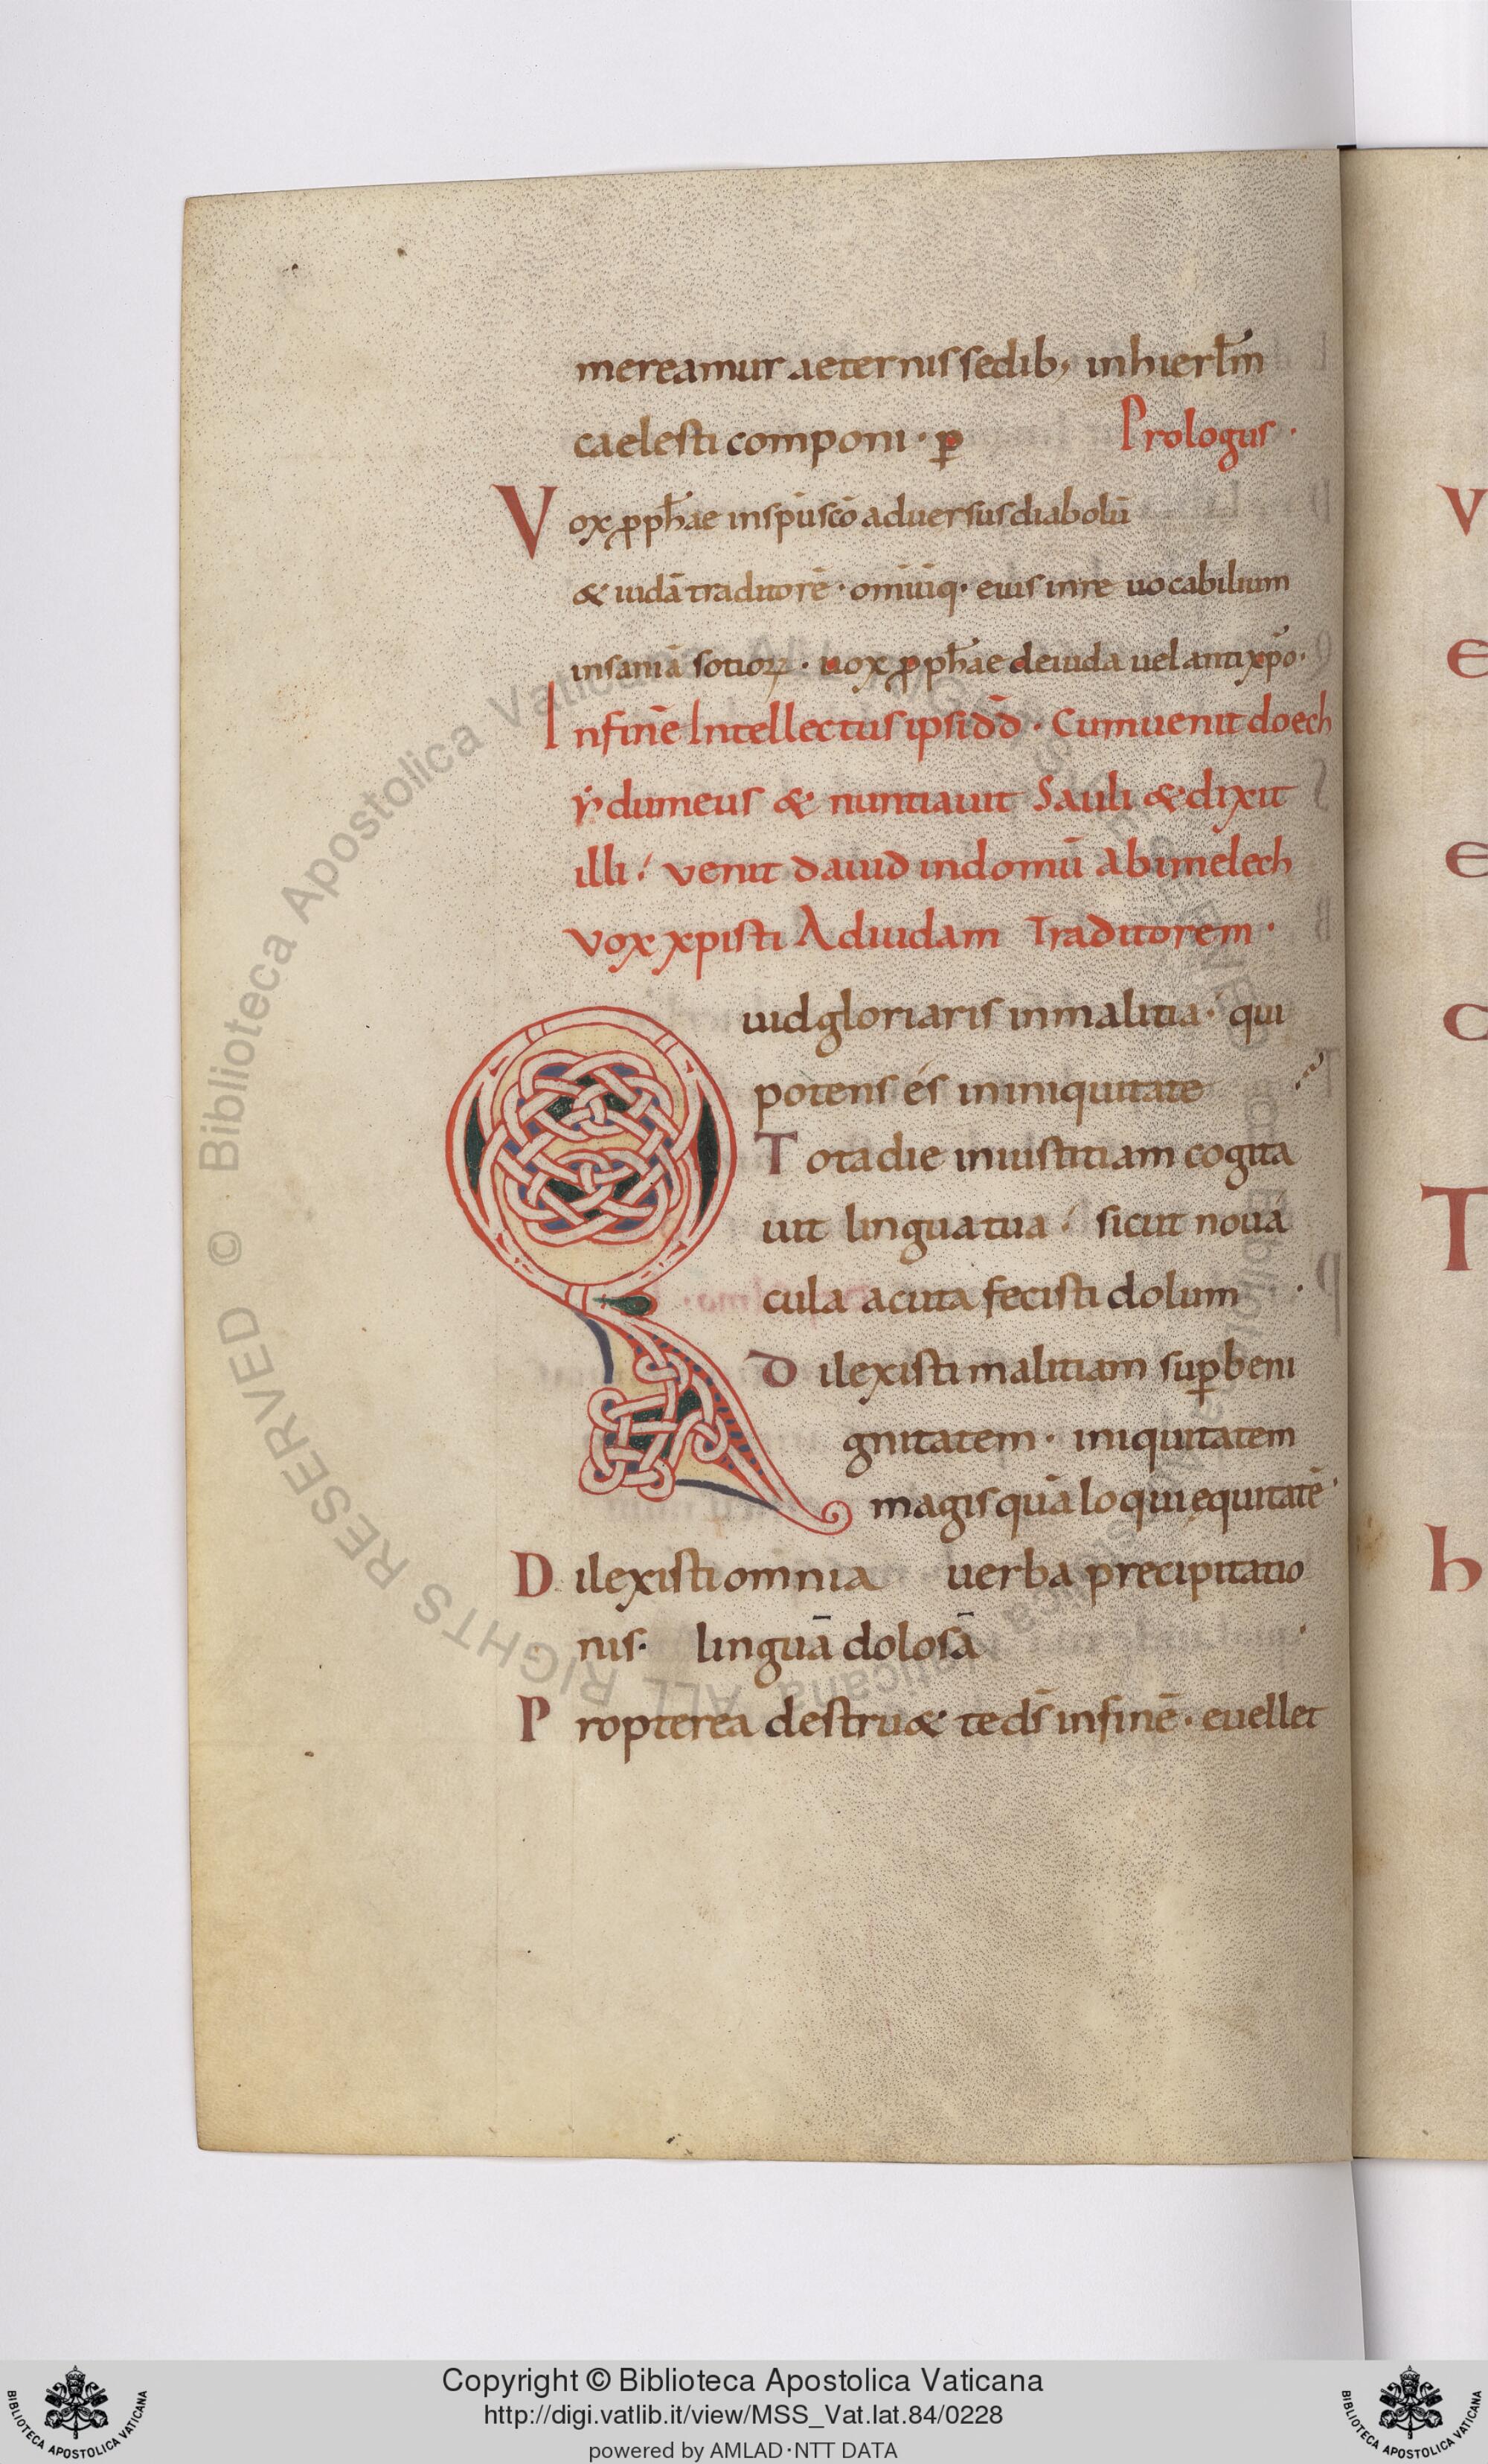 mereamur aeternis sedib; inhierl̄m
caelesti componi · p̱ Prologus ·
Vox ꝓph̄ae in sp̄u sc̄o aduersus diabolū
& iudā traditorē · omniūq· eius in re uocabilium
insaniā sotioꝝ · uox ꝓph̄ae de iuda uel antixp̄o·
In finē Intellectus ipsi dd̄ · Cum uenit doech
ẏdumeus & nuntiauit Sauli & dixit
illi · Venit dauid in domū abimelech
vox xpisti Ad iudam Traditorem ·
Quid gloriaris in malitia · qui
potens és in iniquitate
Tota die iniustitiam cogita
uit lingua tua · sicut noua
cula acuta fecisti dolum ·
Dilexisti malitiam suꝑ beni
gnitatem · iniquitatem
magis quā loqui ęquitatē ·
Dilexisti omnia uerba precipitatio
nis · linguā dolosā
Propterea destru& te ds̄ in finē · euellet
V
e
e
C
T
h
Copyright © Biblioteca Apostolica Vaticana
http://digi.vatlib.it/view/MSS_Vat.lat.84/0228
powered by AMLAD·NTT DATA
BIBLIOTECA APOSTOLICA VATICANA
BIBLIOTECA APOSTOLICA VATICANA
© Biblioteca Apostolica Vaticana ALL RIGHTS RESERVED © Biblioteca Apostolica Vaticana ALL RIGHTS RESERVED